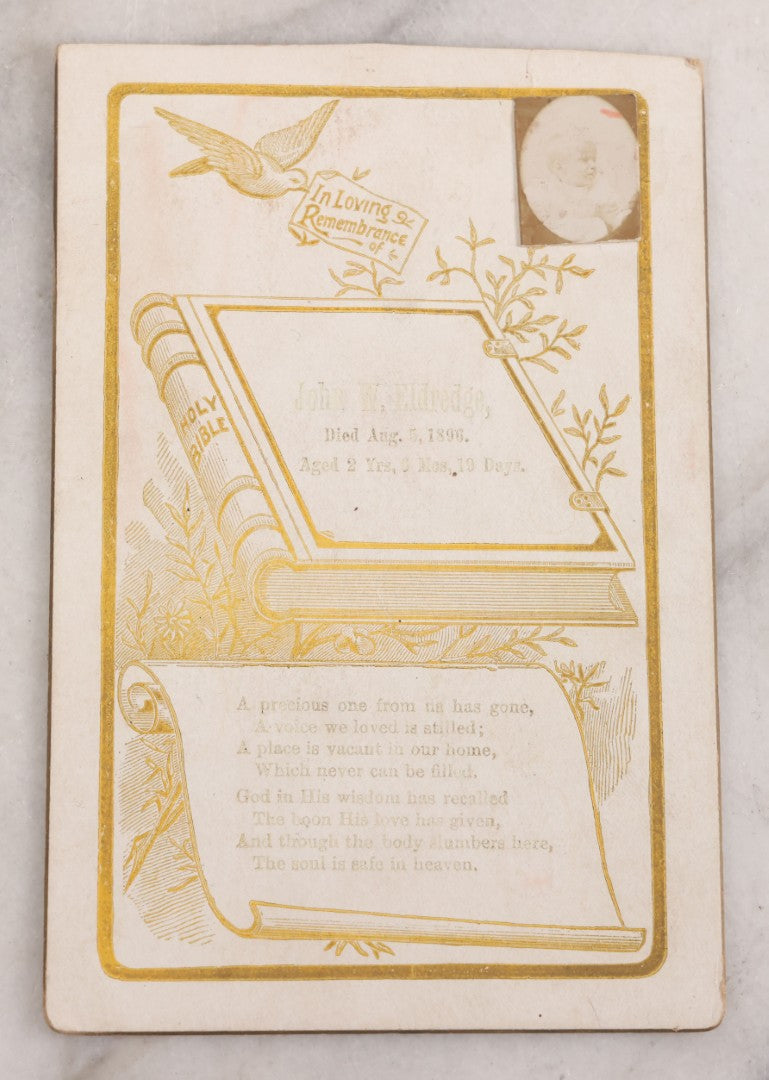 In Loving
Remembrance
of
HOLY
BIBLE
John Eldredge,
Died Aug. 5, 1896.
Aged 2 Yrs, Mos, 19 Days.
A precious one from us has gone,
A voice we loved is stilled;
A place is vacant in our home,
Which never can be filled.
God in His wisdom has recalled
The boon His love has given,
And through the body slumbers here,
The soul is safe in heaven.